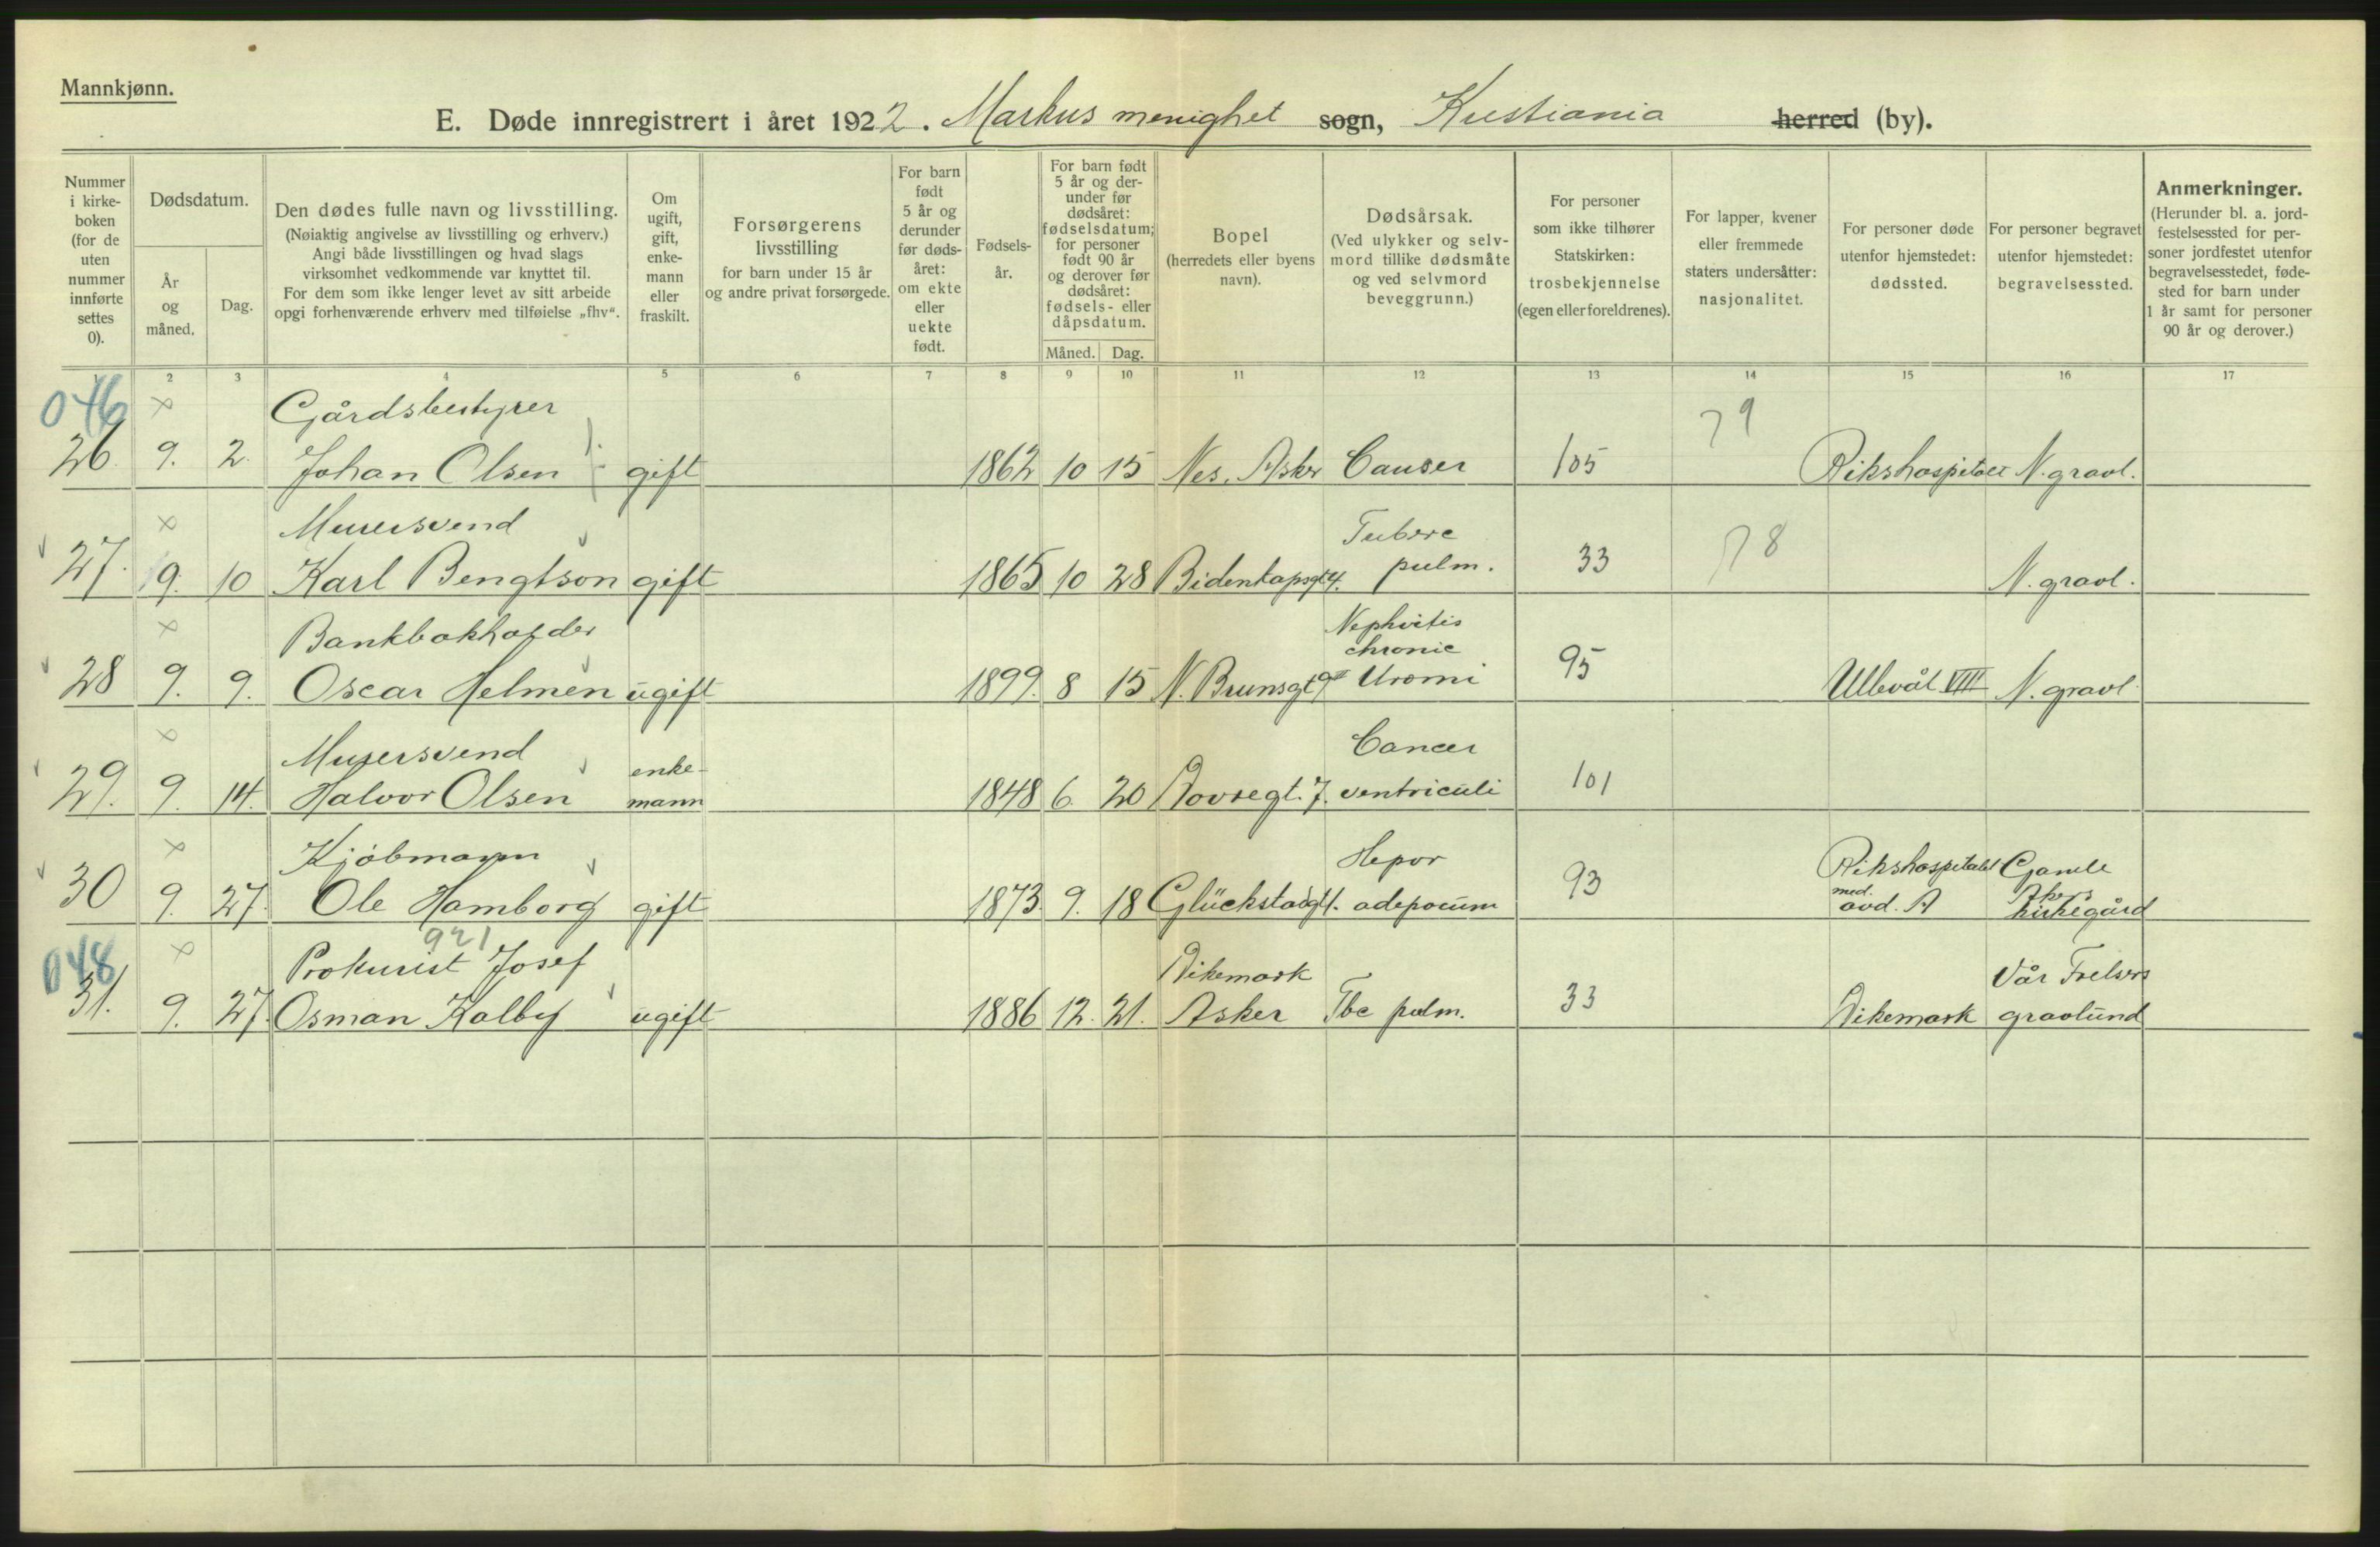 Mannkjønn.
E. Døde innregistrert i året 1922. Markus menighet sogn, Kristiania herred (by).
Nummer i kirkeboken (for de uten nummer innførte settes 0).
Dødsdatum.
År og måned.
Dag.
Den dødes fulle navn og livsstilling.
(Nøiaktig angivelse av livsstilling og erhverv.)
Angi både livsstillingen og hvad slags
virksomhet vedkommende var knyttet til.
For dem som ikke lenger levet av sitt arbeide
opgi forhenværende erhverv med tilføielse „fhv“.
Om ugift, gift, enkemann eller fraskilt.
Forsørgerens
livsstilling
for barn under 15 år
og andre privat forsørgede.
For barn født 5 år og derunder før dødsåret: om ekte eller uekte født.
Fødselsår.
For barn født 5 år og derunder før dødsåret: fødselsdatum; for personer født 90 år og derover før dødsåret: fødsels- eller dåpsdatum.
Måned. Dag.
Bopel
(herredets eller byens
navn).
Dødsårsak.
(Ved ulykker og selvmord tillike dødsmåte
og ved selvmord
beveggrunn.)
For personer
som ikke tilhører
Statskirken:
trosbekjennelse
(egen eller foreldrenes).
For lapper, kvener
eller fremmede
staters undersåtter:
nasjonalitet.
For personer døde
utenfor hjemstedet:
dødssted.
For personer begravet
utenfor hjemstedet:
begravelsessted.
Anmerkninger.
(Herunder bl. a. jordfestelsessted for personer jordfestet utenfor
begravelsesstedet, fødested for barn under
1 år samt for personer
90 år og derover.)
1 2 3 4 5 6 7 8 9 10 11 12 13 14 15 16 17
046 × Gårdsbestyrer 79
26. 9. 2. Johan Olsen gift 1862 10 15 Nes, Asker Cancer 105 Rikshospitalet N. gravl.
× Murersvend Tuberc
27. 9. 10 Karl Bengtson gift 1865 10 28 Bidenkapsgt 4. pulm. 33 78 N. gravl.
× Bankbokholder Nephritis
chronic
28 9. 9. Oscar Helmen ugift 1899. 8 15 N. Brunsgt 9 II Uremi 95 Ullevål VIII N. gravl
× Murersvend enke- Cancer
29. 9. 14. Halvor Olsen mann 1848 6. 20 Dovregt. 7. ventriculi 101
× Kjöbmann Hepar Rikshospitalet Gamle
med. Akers
30 9. 27. Ole Hamborg gift 1873. 9. 18 Glückstadgt 1. adeposum 93 avd. A kirkegård
921
048 × Prokurist Josef Dikemark Vår Frelsers
31. 9. 27. Osman Kalby ugift 1886 12. 21. Asker Tbc pulm. 33 Dikemark gravlund